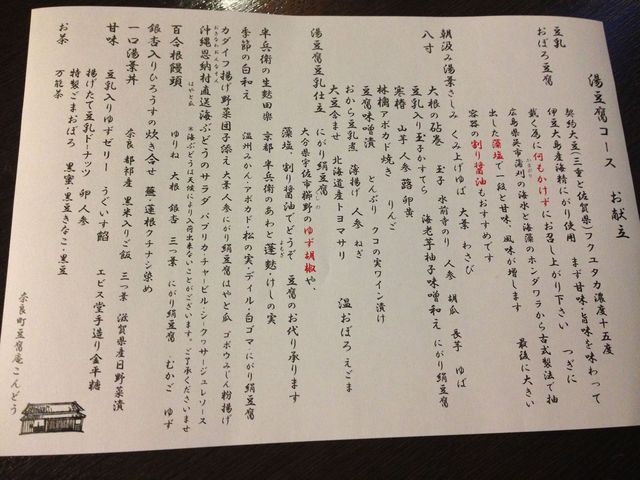 湯豆腐コース お献立
豆乳 契約大豆(三重と佐賀県)フクユタカ濃度十五度
おぼろ豆腐 伊豆大島産海精にがり使用 まず甘味・旨味を味わって
戴く為に何もかけずにお召し上がり下さい つぎに
広島県呉市蒲刈の海水と海藻のホンダワラから古式製法で抽
出した藻塩で一段と甘味、風味が増します 最後に大きい
容器の割り醤油もおすすめです
朝汲み湯葉さしみ くみ上げゆば 大葉 わさび
八寸 大根の砧巻 玉子 水前寺のり 人参 胡瓜 長芋 ゆば
豆乳入り玉子かすてら 海老芋柚子味噌和え にがり絹豆腐
寒椿 山芋 人参 蕗 卵黄
林檎アボカド焼き りんご
豆腐味噌漬 とんぶり クコの実ワイン漬け
おから豆乳煮 薄揚げ 人参 ねぎ
大豆含ませ 北海道産トヨマサリ 温おぼろ えごま
湯豆腐豆乳仕立 にがり絹豆腐
大分県宇佐市櫛野のゆず胡椒や、
くしの
藻塩、割り醤油でどうぞ 豆腐のお代り承ります
半兵衛の生麩田楽 京都 半兵衛のあわと蓬麩・けしの実
よもぎ
季節の白和え 温州みかん・アボカド・松の実・ディル・白ゴマ・にがり絹豆腐
カダイフ揚げ野菜団子添え 大葉 人参 にがり絹豆腐 はやと瓜 ゴボウみじん粉揚げ
沖縄恩納村直送海ぶどうのサラダ パプリカ・チャービル・シークヮサージュレソース
おきなわおんなそん
はやと瓜 ※海ぶどうは天候により入荷出来ないことがございます。ご了承くださいませ
百合根饅頭 ゆりね 大根 銀杏 三つ葉 にがり絹豆腐 むかご ゆず
銀杏入りひろうすの炊き合せ 蕪・蓮根クチナシ染め
一口湯葉丼 奈良 都祁産 黒米入りご飯 三つ葉 滋賀県産日野菜漬
甘味 豆乳入りゆずゼリー うぐいす餡
揚げたて豆乳ドーナッツ 卵 人参 エビス堂手造り金平糖
特製ごまおぼろ 黒蜜・黒豆きなこ・黒豆
お茶 万能茶
奈良町豆腐庵こんどう